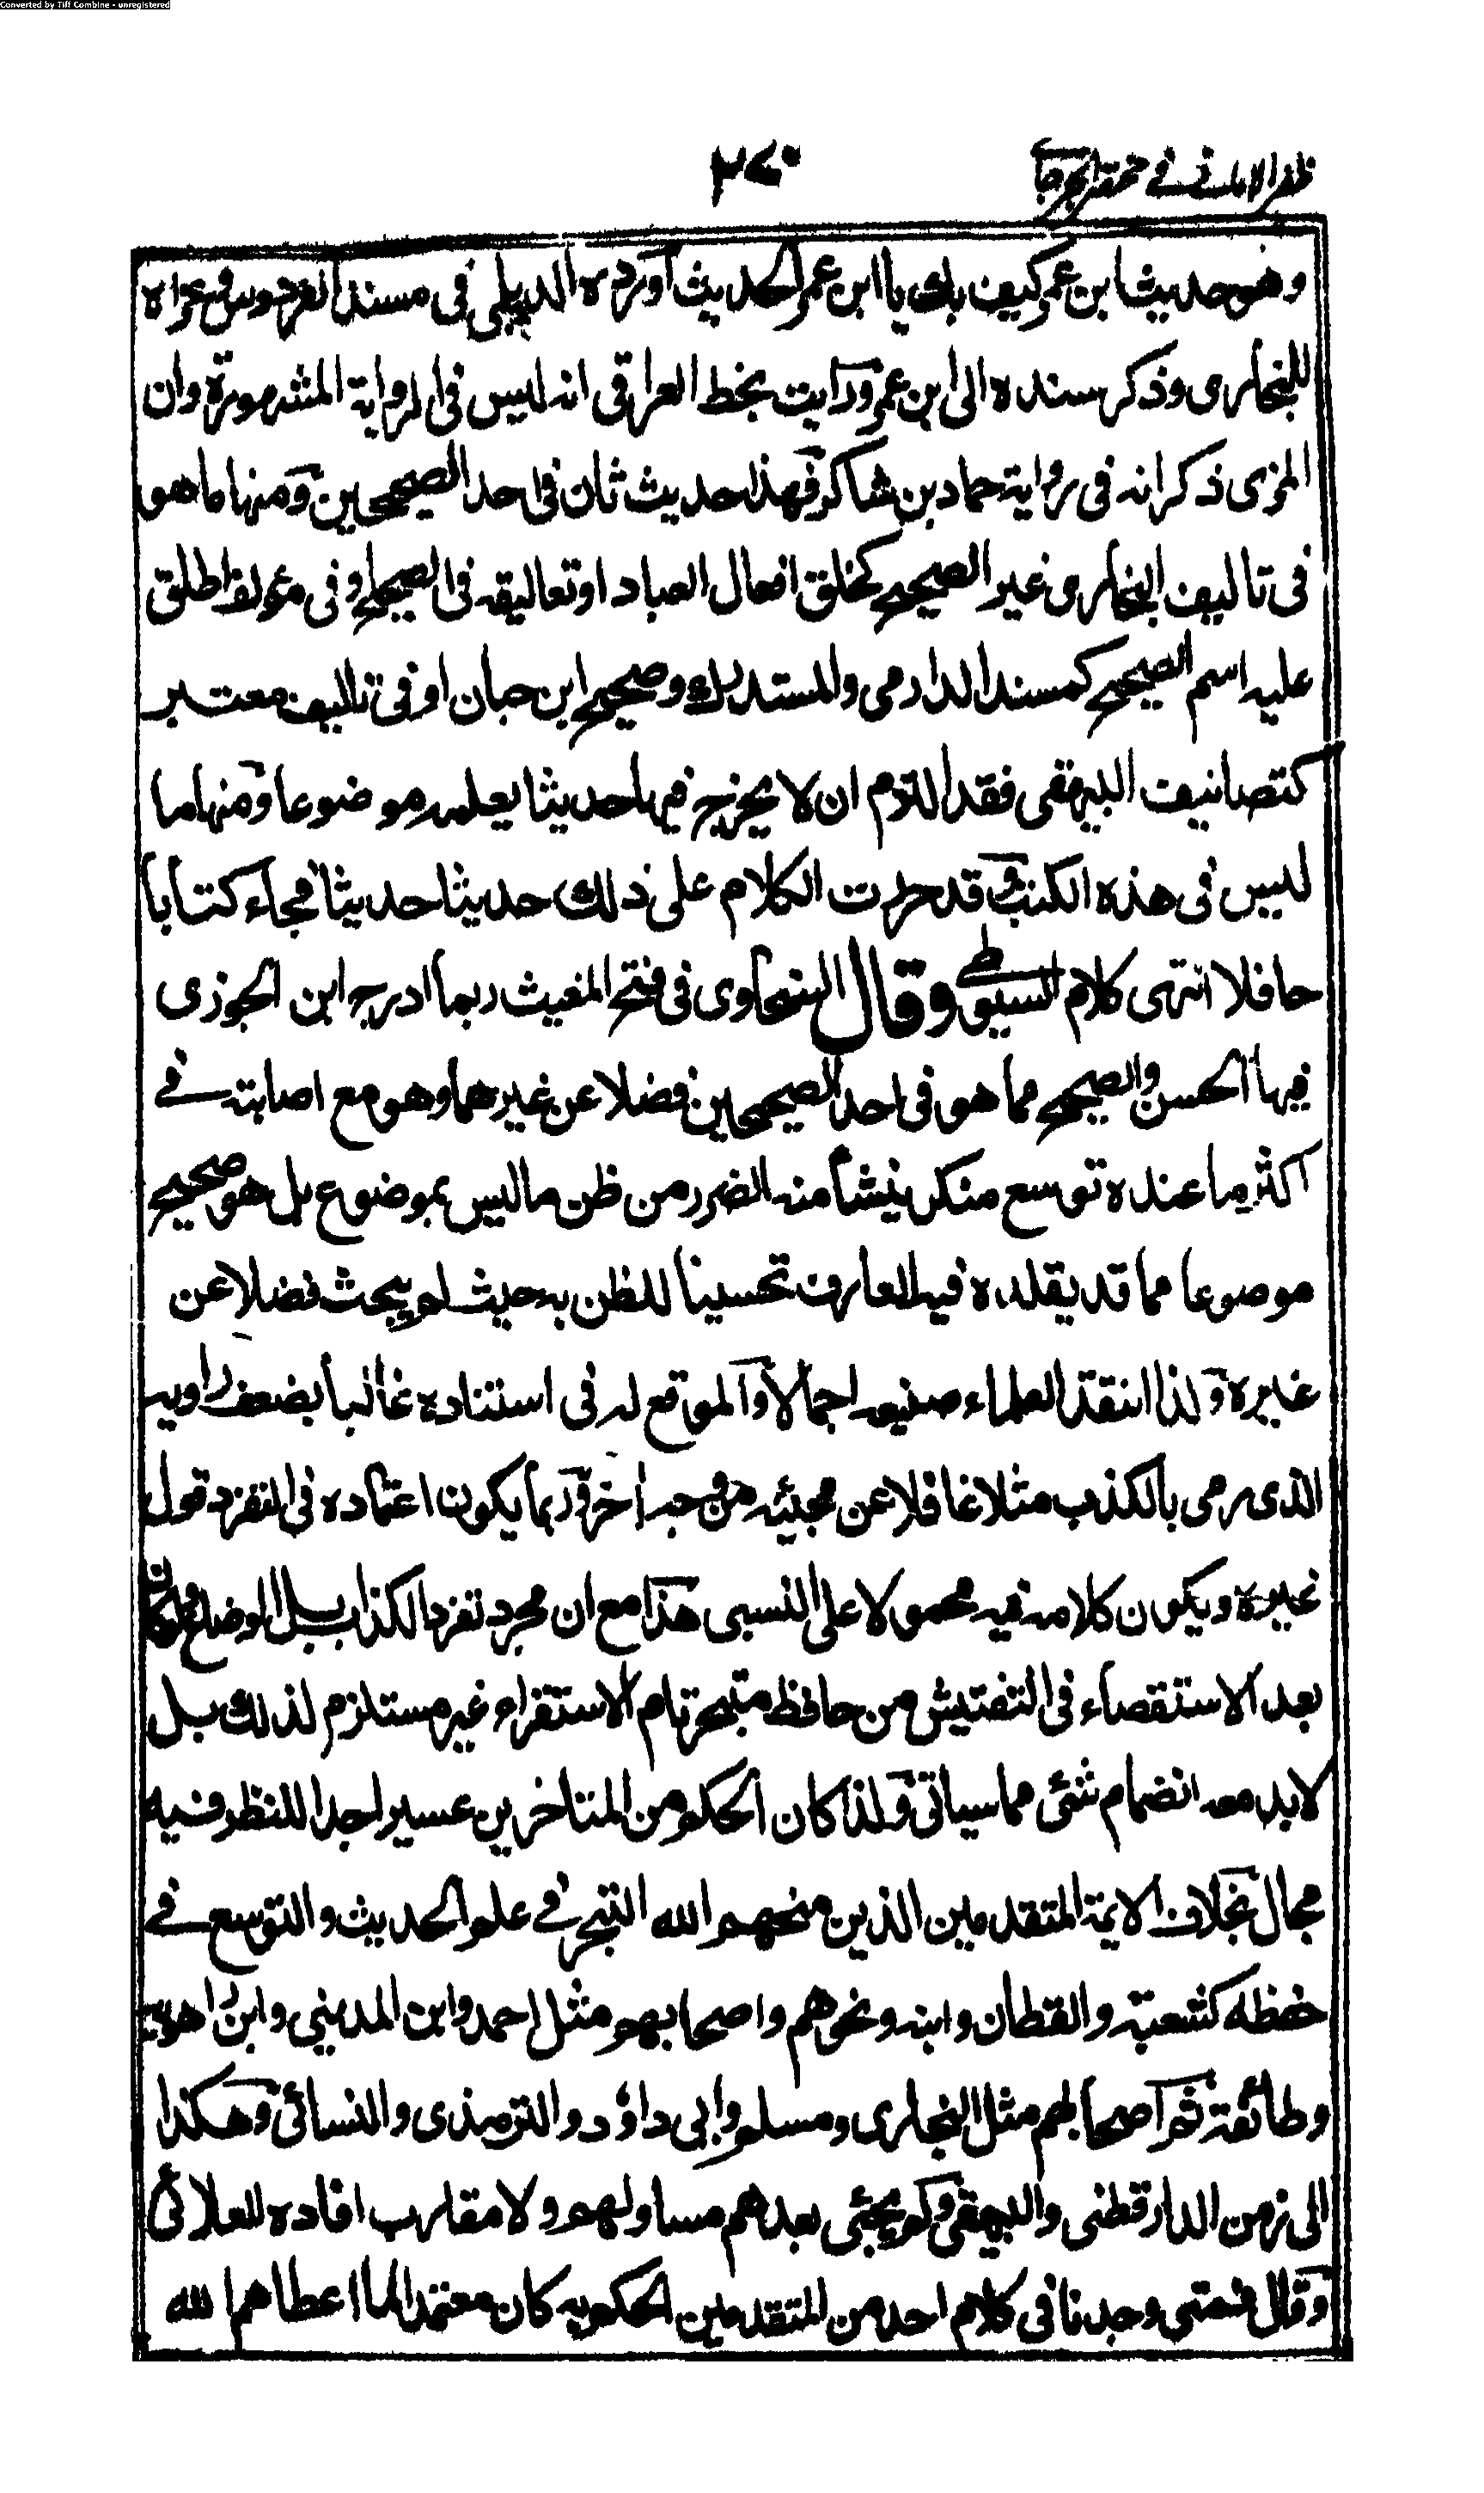 Converted by Tiff Combine - unregistered
ظفر الامانى فى مختصر الجرجانى
٢٧٠
وهو حديث ابن عمر كيف بك يا ابن عمر الحديث اورده الديلمى فى مسند الفردوس وعزاه
للبخارى وذكر سنده الى ابن عمر ورايت بخط العراقى انه ليس فى الرواية المشهورة وان
المزى ذكر انه فى رواية حماد بن شاكر فهذا حديث ثان فى احد الصحيحين ومنها ما هو
فى تاليف البخارى غير الصحيح كخلق افعال العباد او تعاليقه فى الصحيح او فى مؤلف اطلق
عليه اسم الصحيح كمسند الدارمى والمستدرك وصحيح ابن حبان او فى تاليف معتبر
كتصانيف البيهقى فقد التزم ان لا يخرج فيها حديثا يعلمه موضوعا ومنها ما
ليس فى هذه الكتب وقد حررت الكلام على ذلك حديثا حديثا فجاء كتابا
حافلا انتهى كلام السيوطى وقال السخاوى فى فتح المغيث ربما ادرج ابن الجوزى
فيها الحسن والصحيح مما هو فى احد الصحيحين فضلا عن غيرهما وهو مع اصابته فى
اكثر ما عنده توسع منكر ينشأ منه الضرر من ظن ما ليس بموضوع بل هو صحيح
موضوعا مما قد يقلده فيه العارف تحسينا للظن به حيث لم يبحث فضلا عن
غيره ولذا انتقد العلماء صنيعه اجمالا والموقع له فى استناده غالبا بضعف راويه
الذى رمى بالكذب مثلا غافلا عن مجيئه من وجه آخر وربما يكون اعتماده فى التفرد قول
غيره ويكون كلامه فيه محمولا على النسبى هذا مع ان مجرد تفرد الكذاب بل الوضاع ولو كان
بعد الاستقصاء فى التفتيش من حافظ متبحر تام الاستقراء غير مستلزم لذلك بل
لابد معه انضمام شئى مما سياتى ولذا كان الحكم من المتاخرين عسيرا جدا للنظر فيه
مجال بخلاف الايمة المتقدمين الذين منحهم الله التبحر فى علم الحديث والتوسع فى
حفظه كشعبة والقطان وابنه ونحوهم واصحابهم مثل احمد وابن المدينى وابن راهويه
وطائفة ثم اصحابهم مثل البخارى ومسلم وابى داؤد والترمذى والنسائى وهكذا
الى زمن الدارقطنى والبيهقى ولم يجئى بعدهم مساو لهم ولا مقارب افاده العلائى
وقال فمتى وجدنا فى كلام احد من المتقدمين الحكم به كان معتمدا لما اعطاهم الله